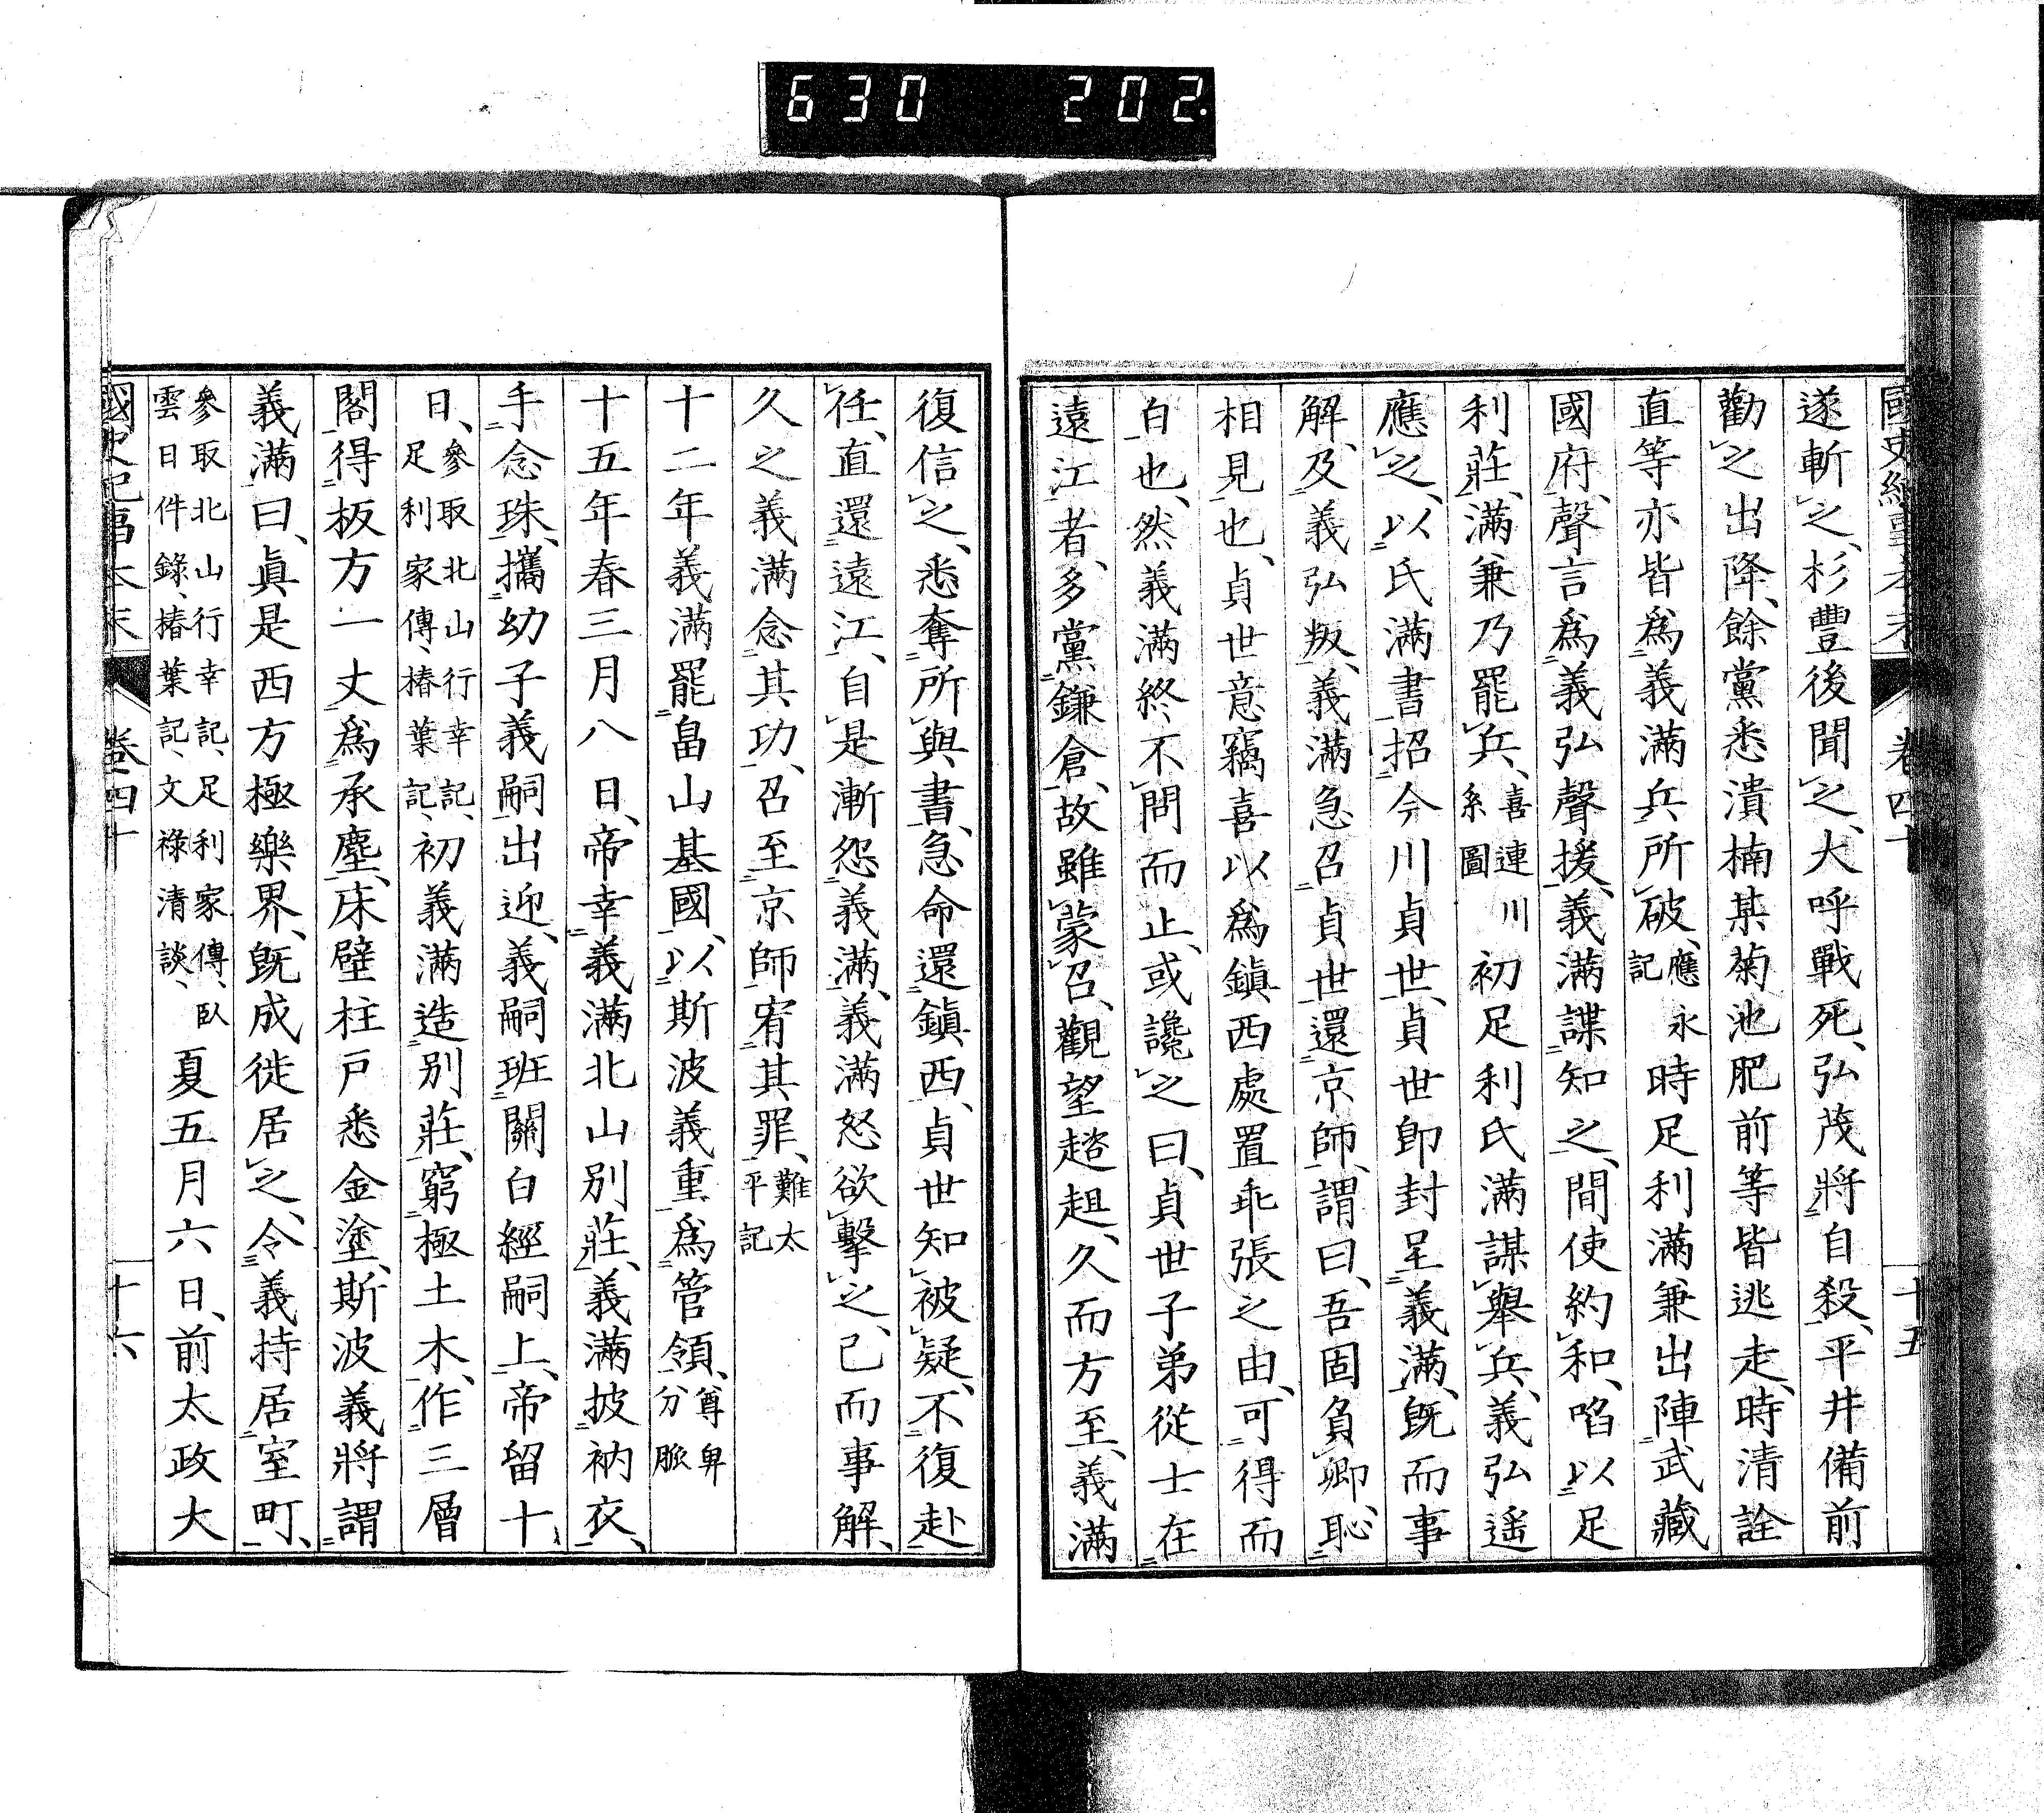 630 202.
國史紀事本末 卷四十 十五
遂斬之、杉豐後聞之、大呼戰死、弘茂將自殺、平井備前
勸之出降、餘黨悉潰楠某菊池肥前等皆逃走、時清詮
直等亦皆爲義滿兵所破、應永記時足利滿兼出陣武藏
國府、聲言爲義弘聲援、義滿諜知之、間使約和、啗以足
利莊、滿兼乃罷兵、喜連川系圖初足利氏滿謀舉兵、義弘遙
應之、以氏滿書招今川貞世、貞世卽封呈義滿、旣而事
解、及義弘叛、義滿急召貞世還京師、謂曰、吾固負卿、恥
相見也、貞世意竊喜以爲鎭西處置乖張之由、可得而
白也、然義滿終不問而止、或讒之曰、貞世子弟從士在
遠江者、多黨鎌倉、故雖蒙召、觀望趦趄、久而方至、義滿
復信之、悉奪所與書、急命還鎭西、貞世知被疑、不復赴
任、直還遠江、自是漸怨義滿、義滿怒欲擊之、已而事解、
久之義滿念其功、召至京師、宥其罪、難太平記
十二年義滿罷畠山基國、以斯波義重爲管領、尊卑分脈
十五年春三月八日、帝幸義滿北山別莊、義滿披衲衣、
手念珠、攜幼子義嗣出迎、義嗣班關白經嗣上、帝留十
日、參取北山行幸記、足利家傳、椿葉記、初義滿造別莊、窮極土木、作三層
閣得板方一丈爲承塵、床壁柱戶悉金塗、斯波義將謂
義滿曰、眞是西方極樂界、旣成徙居之、令義持居室町、
參取北山行幸記、足利家傳、臥雲日件錄、椿葉記、文祿清談、夏五月六日、前太政大
國史紀事本末 卷四十 十六